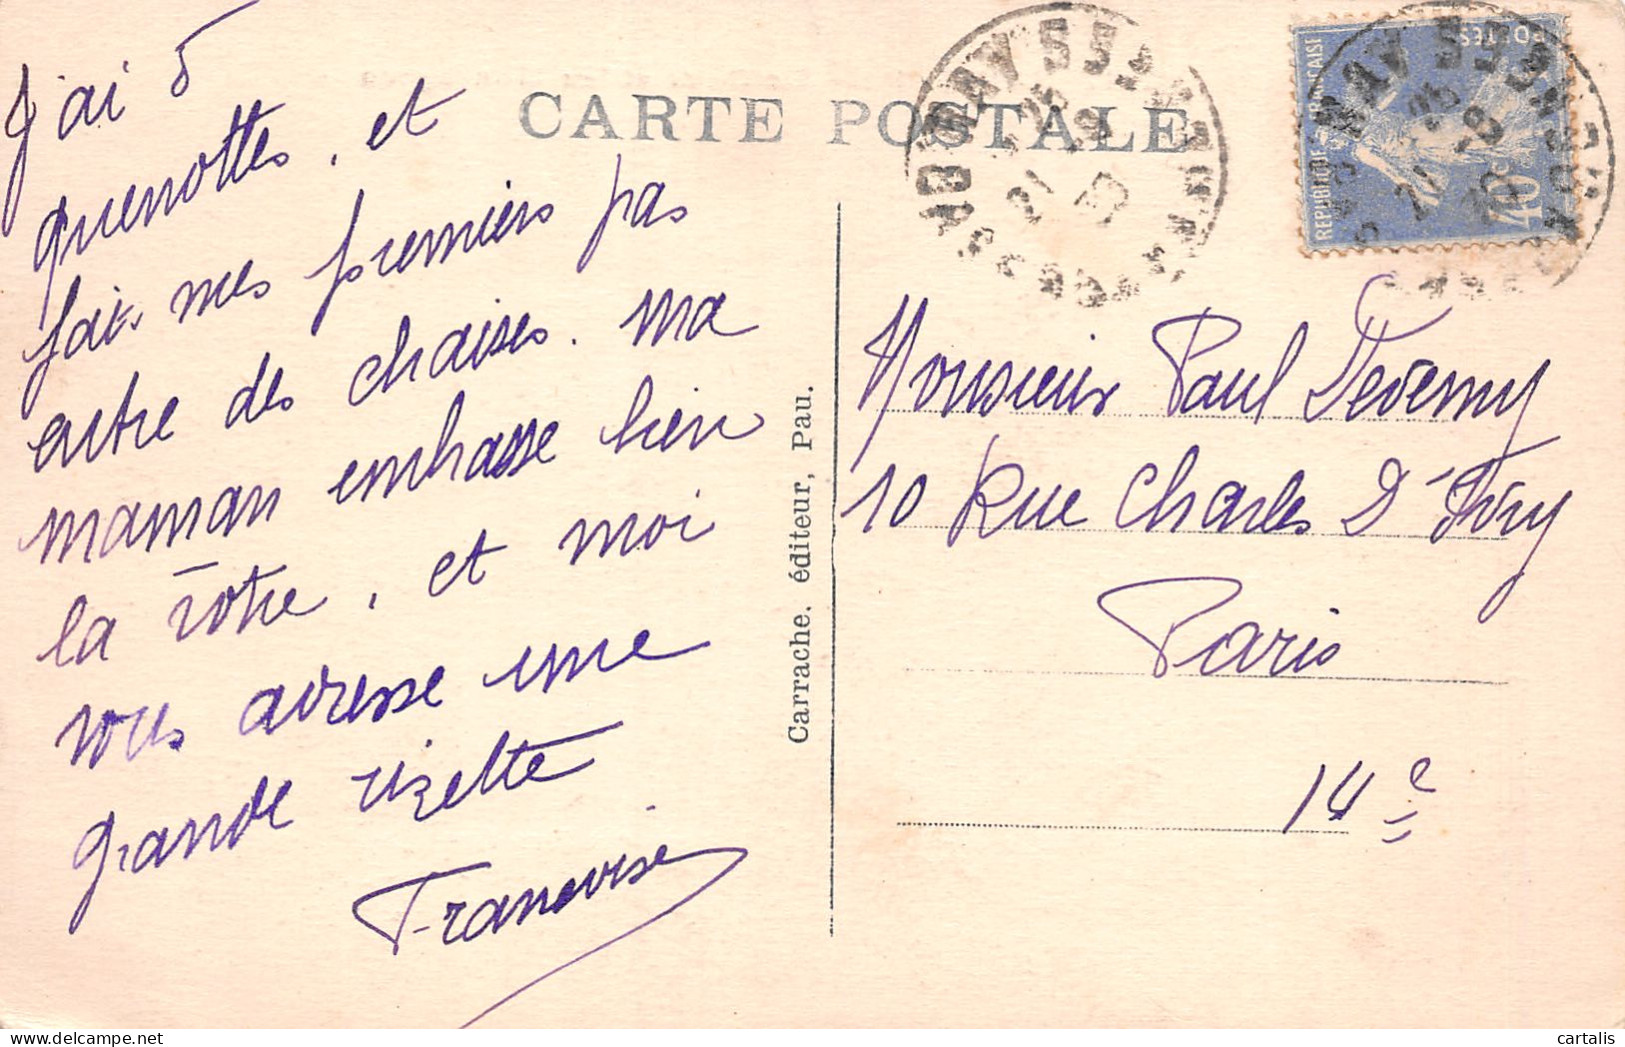 CARTE POSTALE
J'ai 5
quenottes, et
fait mes premiers pas
entre des chaises. ma
maman embrasse bien
la vôtre, et moi
vous adresse une
grande rizette
Françoise
Carrache, éditeur, Pau.
POSTES
REPUBLIQUE FRANCAISE
40c
21
Monsieur Paul Deverny
10 Rue Charles D'Ivry
Paris
14e
cartalis